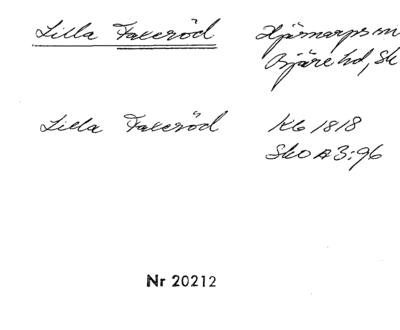 Lilla Fakeröd Hjärnarps sn
Bjäre hd, Sk
Lilla Fakeröd Kb 1818
SkO A3:96
Nr 20212